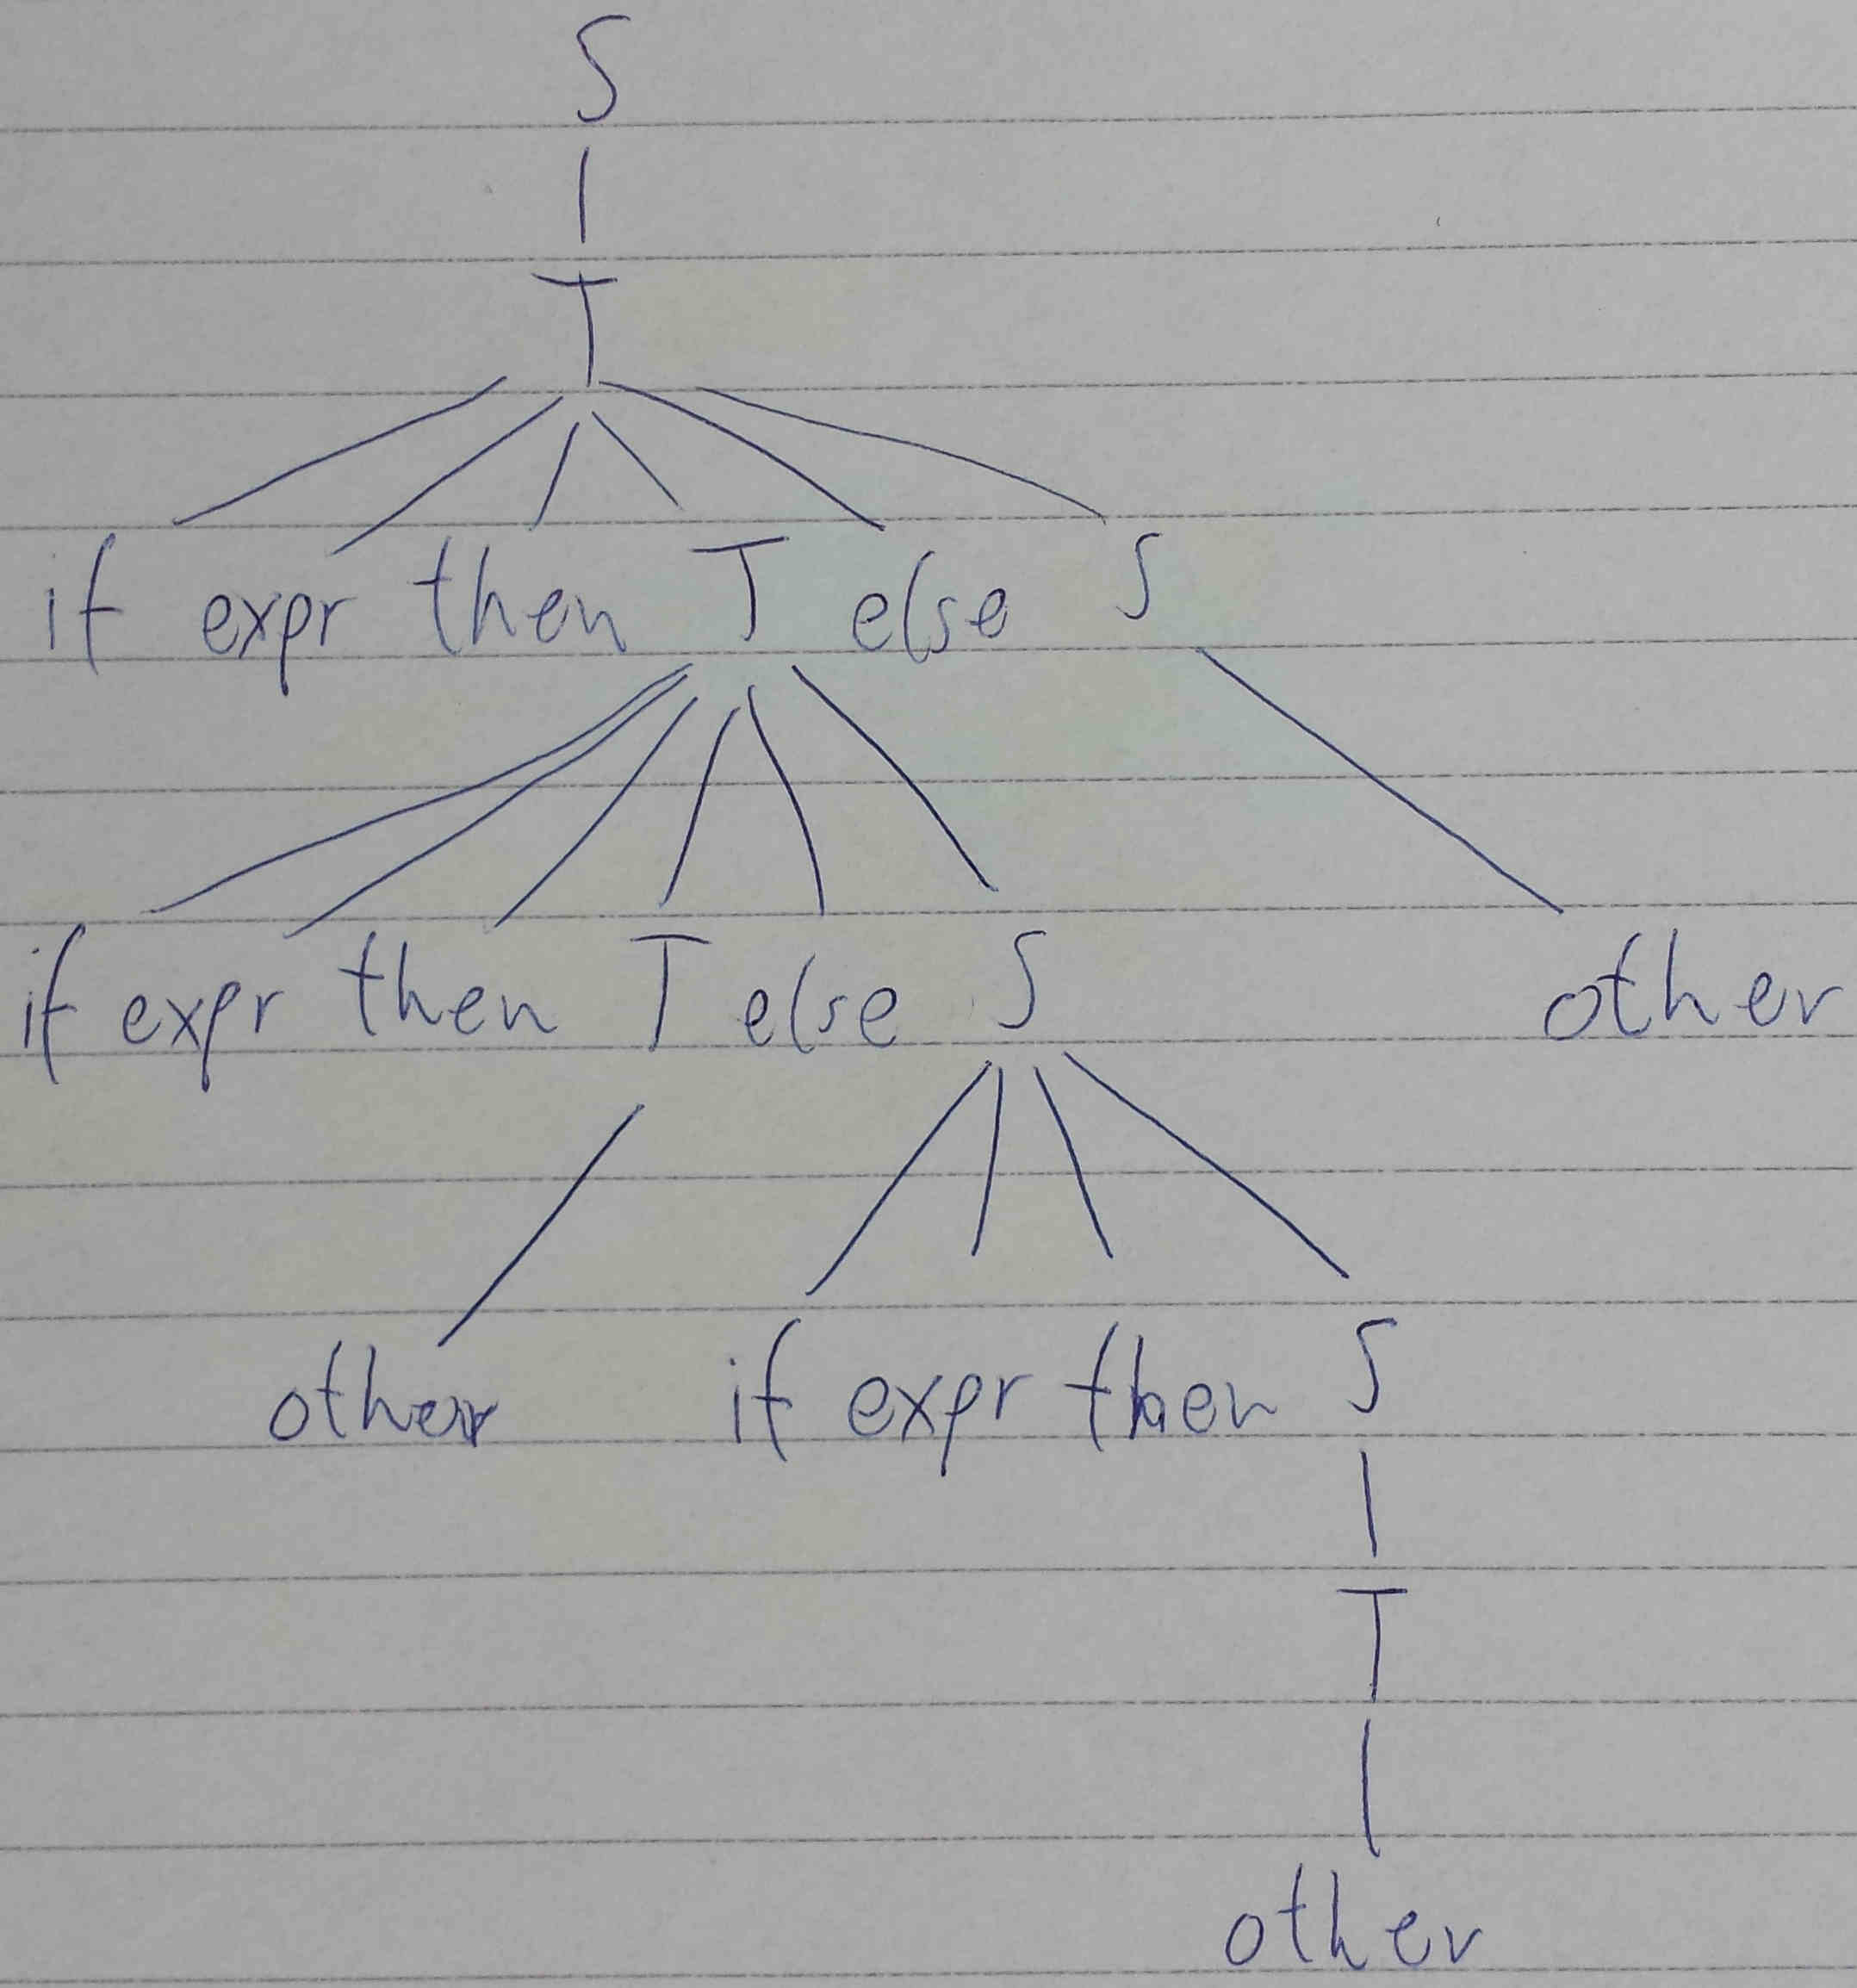 S
T
if expr then T else S
if expr then T else S other
other if expr then S
T
other